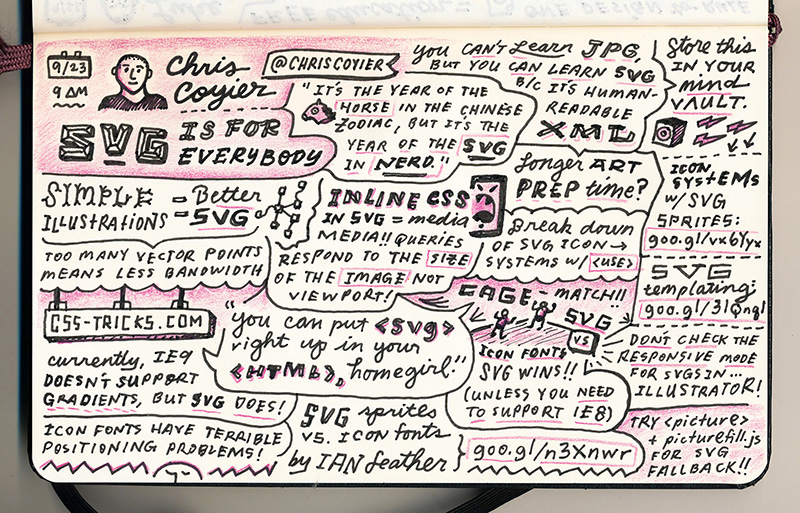 9/23
9 AM
Chris
Coyier
SVG
IS FOR
EVERYBODY
@CHRISCOYIER
"IT'S THE YEAR OF THE
HORSE IN THE CHINESE
ZODIAC, BUT IT'S THE
YEAR OF THE SVG
IN NERD."
you CAN'T Learn JPG,
BUT YOU CAN LEARN SVG
B/C IT'S HUMAN-
READABLE
XML
Store this
IN YOUR
mind
VAULT.
SIMPLE
ILLUSTRATIONS
= Better
= SVG
TOO MANY VECTOR POINTS
MEANS LESS BANDWIDTH
INLINE CSS
IN SVG = media
MEDIA!! QUERIES
RESPOND TO THE SIZE
OF THE IMAGE NOT
VIEWPORT!
Longer ART
PREP time?
Break down
OF SVG ICON →
SYSTEMS W/ <USE>
ICON
SYSTEMS
W/ SVG
SPRITES:
goo.gl/vx6Yyx
SVG
templating:
CSS-TRICKS.COM
currently, IE9
DOESN'T SUPPORT
GRADIENTS, BUT SVG DOES!
ICON FONTS HAVE TERRIBLE
POSITIONING PROBLEMS!
"you can put <svg>
right up in your
<HTML>, homegirl."
CAGE-MATCH!!
SVG
VS
ICON FONTS
SVG WINS!!
(UNLESS YOU NEED
TO SUPPORT IE8)
DON'T CHECK THE
RESPONSIVE MODE
FOR SVGS IN...
ILLUSTRATOR!
SVG sprites
VS. ICON fonts
by IAN feather
goo.gl/n3Xnwr
TRY <picture>
+ picturefill.js
FOR SVG
FALLBACK!!